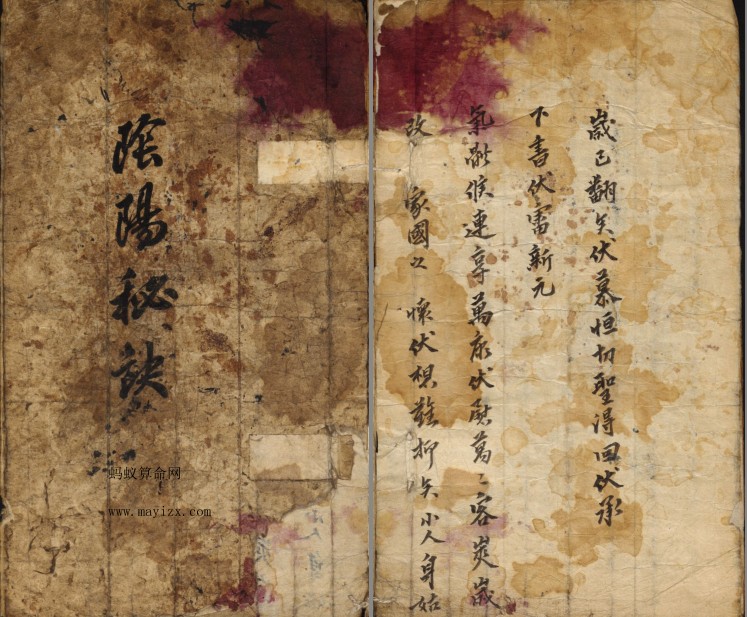 陰陽秘訣
蚂蚁算命网
www.mayizx.com
歲已翻矣伏慕恒切聖得回伏承
下書伏審新元
氣候連享萬康伏慰萬〻客嵗
改 家國之 懷伏想難抑矣小人身姑